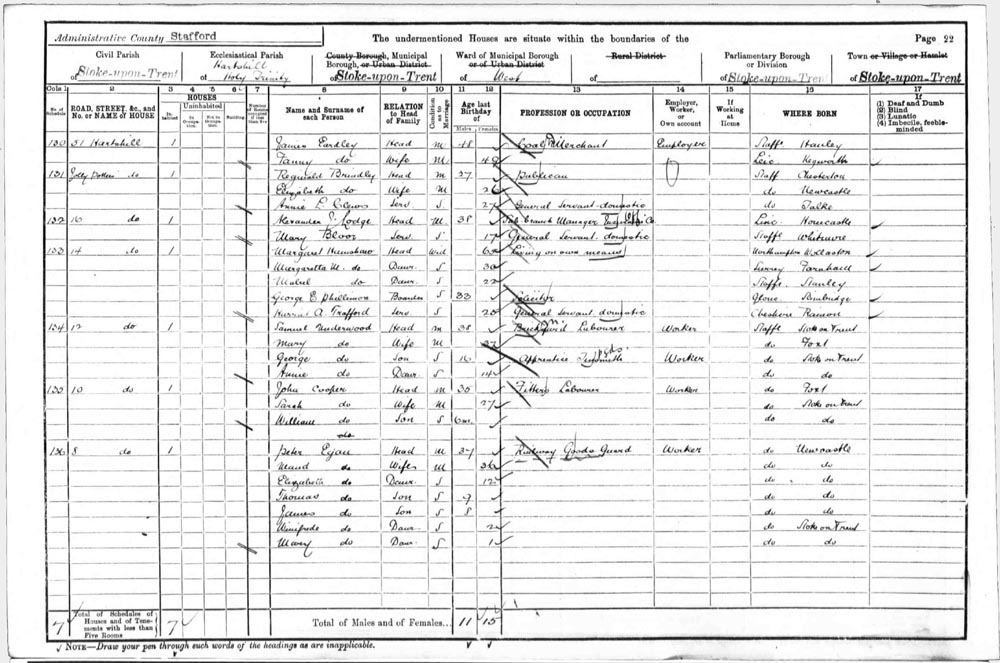 Administrative County Stafford The undermentioned Houses are situate within the boundaries of the Page 22
Civil Parish of Stoke-upon-Trent
Ecclesiastical Parish of Hartshill Holy Trinity
County Borough, Municipal Borough, or Urban District of Stoke-upon-Trent
Ward of Municipal Borough or of Urban District of West
Rural District of
Parliamentary Borough or Division of Stoke-upon-Trent
Town or Village or Hamlet of Stoke-upon-Trent
Cols 1 2 3 4 5 6 7 8 9 10 11 12 13 14 15 16 17
No. of Schedule ROAD, STREET, &c., and No. or NAME of HOUSE HOUSES Inhabited Uninhabited In Occupation Not in Occupation Building Name and Surname of each Person RELATION to Head of Family Condition as to Marriage Age last Birthday of Males Females PROFESSION OR OCCUPATION Employer, Worker, or Own account If Working at Home WHERE BORN If (1) Deaf and Dumb (2) Blind (3) Lunatic (4) Imbecile, feeble-minded
130 51 Hartshill 1 James Eardley Head M 48 Coal Merchant Employer Staffs Hanley
Fanny do Wife M 49 Leic Kegworth
131 Jolly Potters do 1 Reginald Brindley Head M 27 Publican Staff Chesterton
Elizabeth do Wife M 26 do Newcastle
Annie L. Clews Serv. S 27 General Servant domestic do Talke
132 16 do 1 Alexander J. Lodge Head M 38 Sub branch Manager Co. Linc Horncastle
Mary Bloor Serv. S 17 General Servant domestic Staffs Whitmore
133 14 do 1 Margaret Henshaw Head Wid 62 Living on own means Northampton Wollaston
Margaretta M. do Daur. S 30 Surrey Farnham
Mabel do Daur. S 22 Staffs Stanley
George E. Phillimore Boarder S 33 Solicitor Glouc
Harriet A. Trafford Serv. S 25 General Servant domestic Cheshire
134 12 do 1 Samuel Underwood Head M 38 Brickyard Labourer Worker Staffs Stoke on Trent
Mary do Wife M 37 do Foxt
George do Son S 16 Apprentice Tinsmith Worker do Stoke on Trent
Annie do Daur S 14 do do
135 10 do 1 John Cooper Head M 35 Fitters Labourer Worker do Foxt
Sarah do Wife M 27 do Stoke on Trent
William do Son S 6m. do do
do
136 8 do 1 Peter Egan Head M 37 Railway Goods Guard Worker do Newcastle
Maud do Wife M 36 do do
Elizabeth do Daur S 12 do do
Thomas do Son S 9 do do
James do Son S 8 do do
Winifrede do Daur S 2 do Stoke on Trent
Mary do Daur S 1 do do
7 Total of Schedules of Houses and of Tenements with less than Five Rooms 7 Total of Males and of Females... 11 15
NOTE—Draw your pen through such words of the headings as are inapplicable.